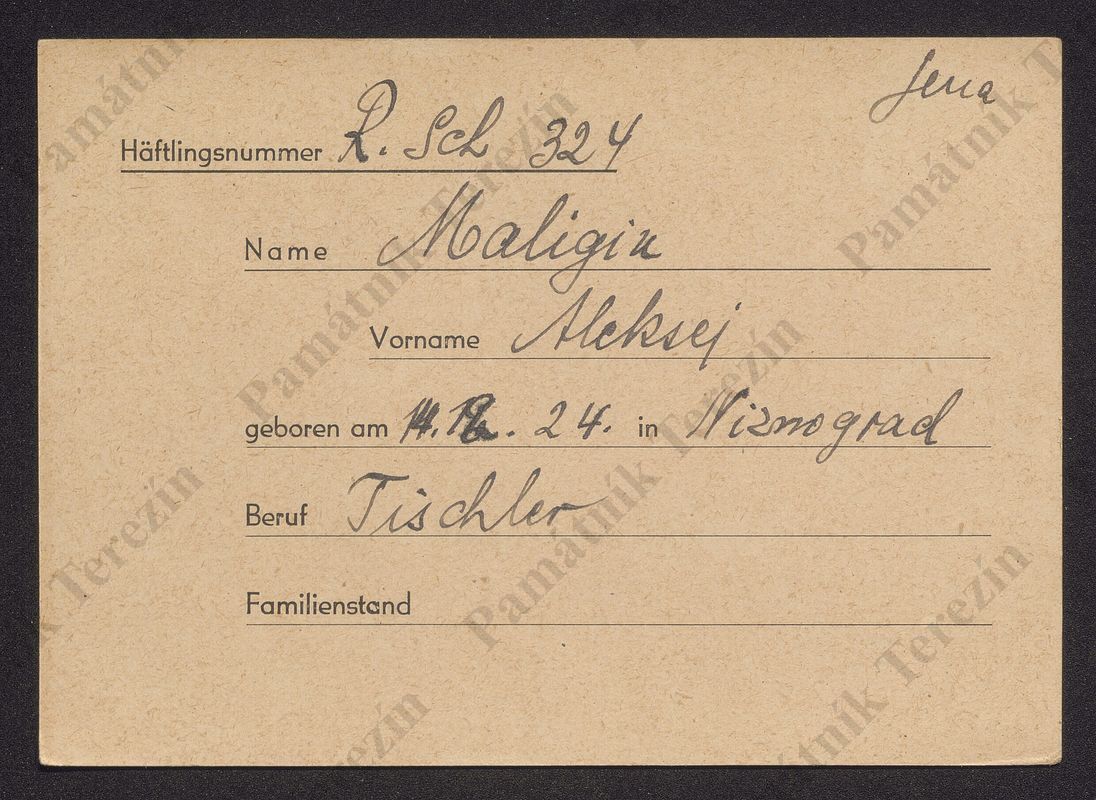 Jena
Häftlingsnummer R. Sch 324
Name Maligin
Vorname Aleksej
geboren am 24. in Niznograd
Beruf Tischler
Familienstand
Památník Terezín